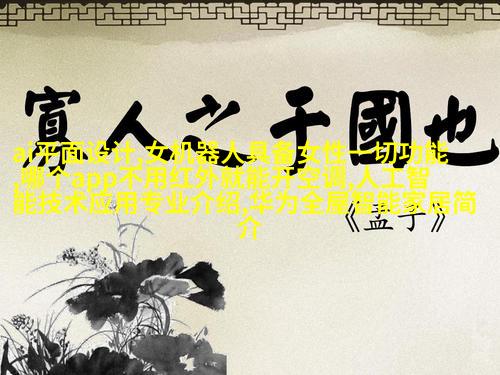 寡人之于國也
ai平面设计,女机器人具备女性一切功能
,哪个app不用红外就能开空调,人工智
能技术应用专业介绍,华为全屋智能家居简
介
《孟子》